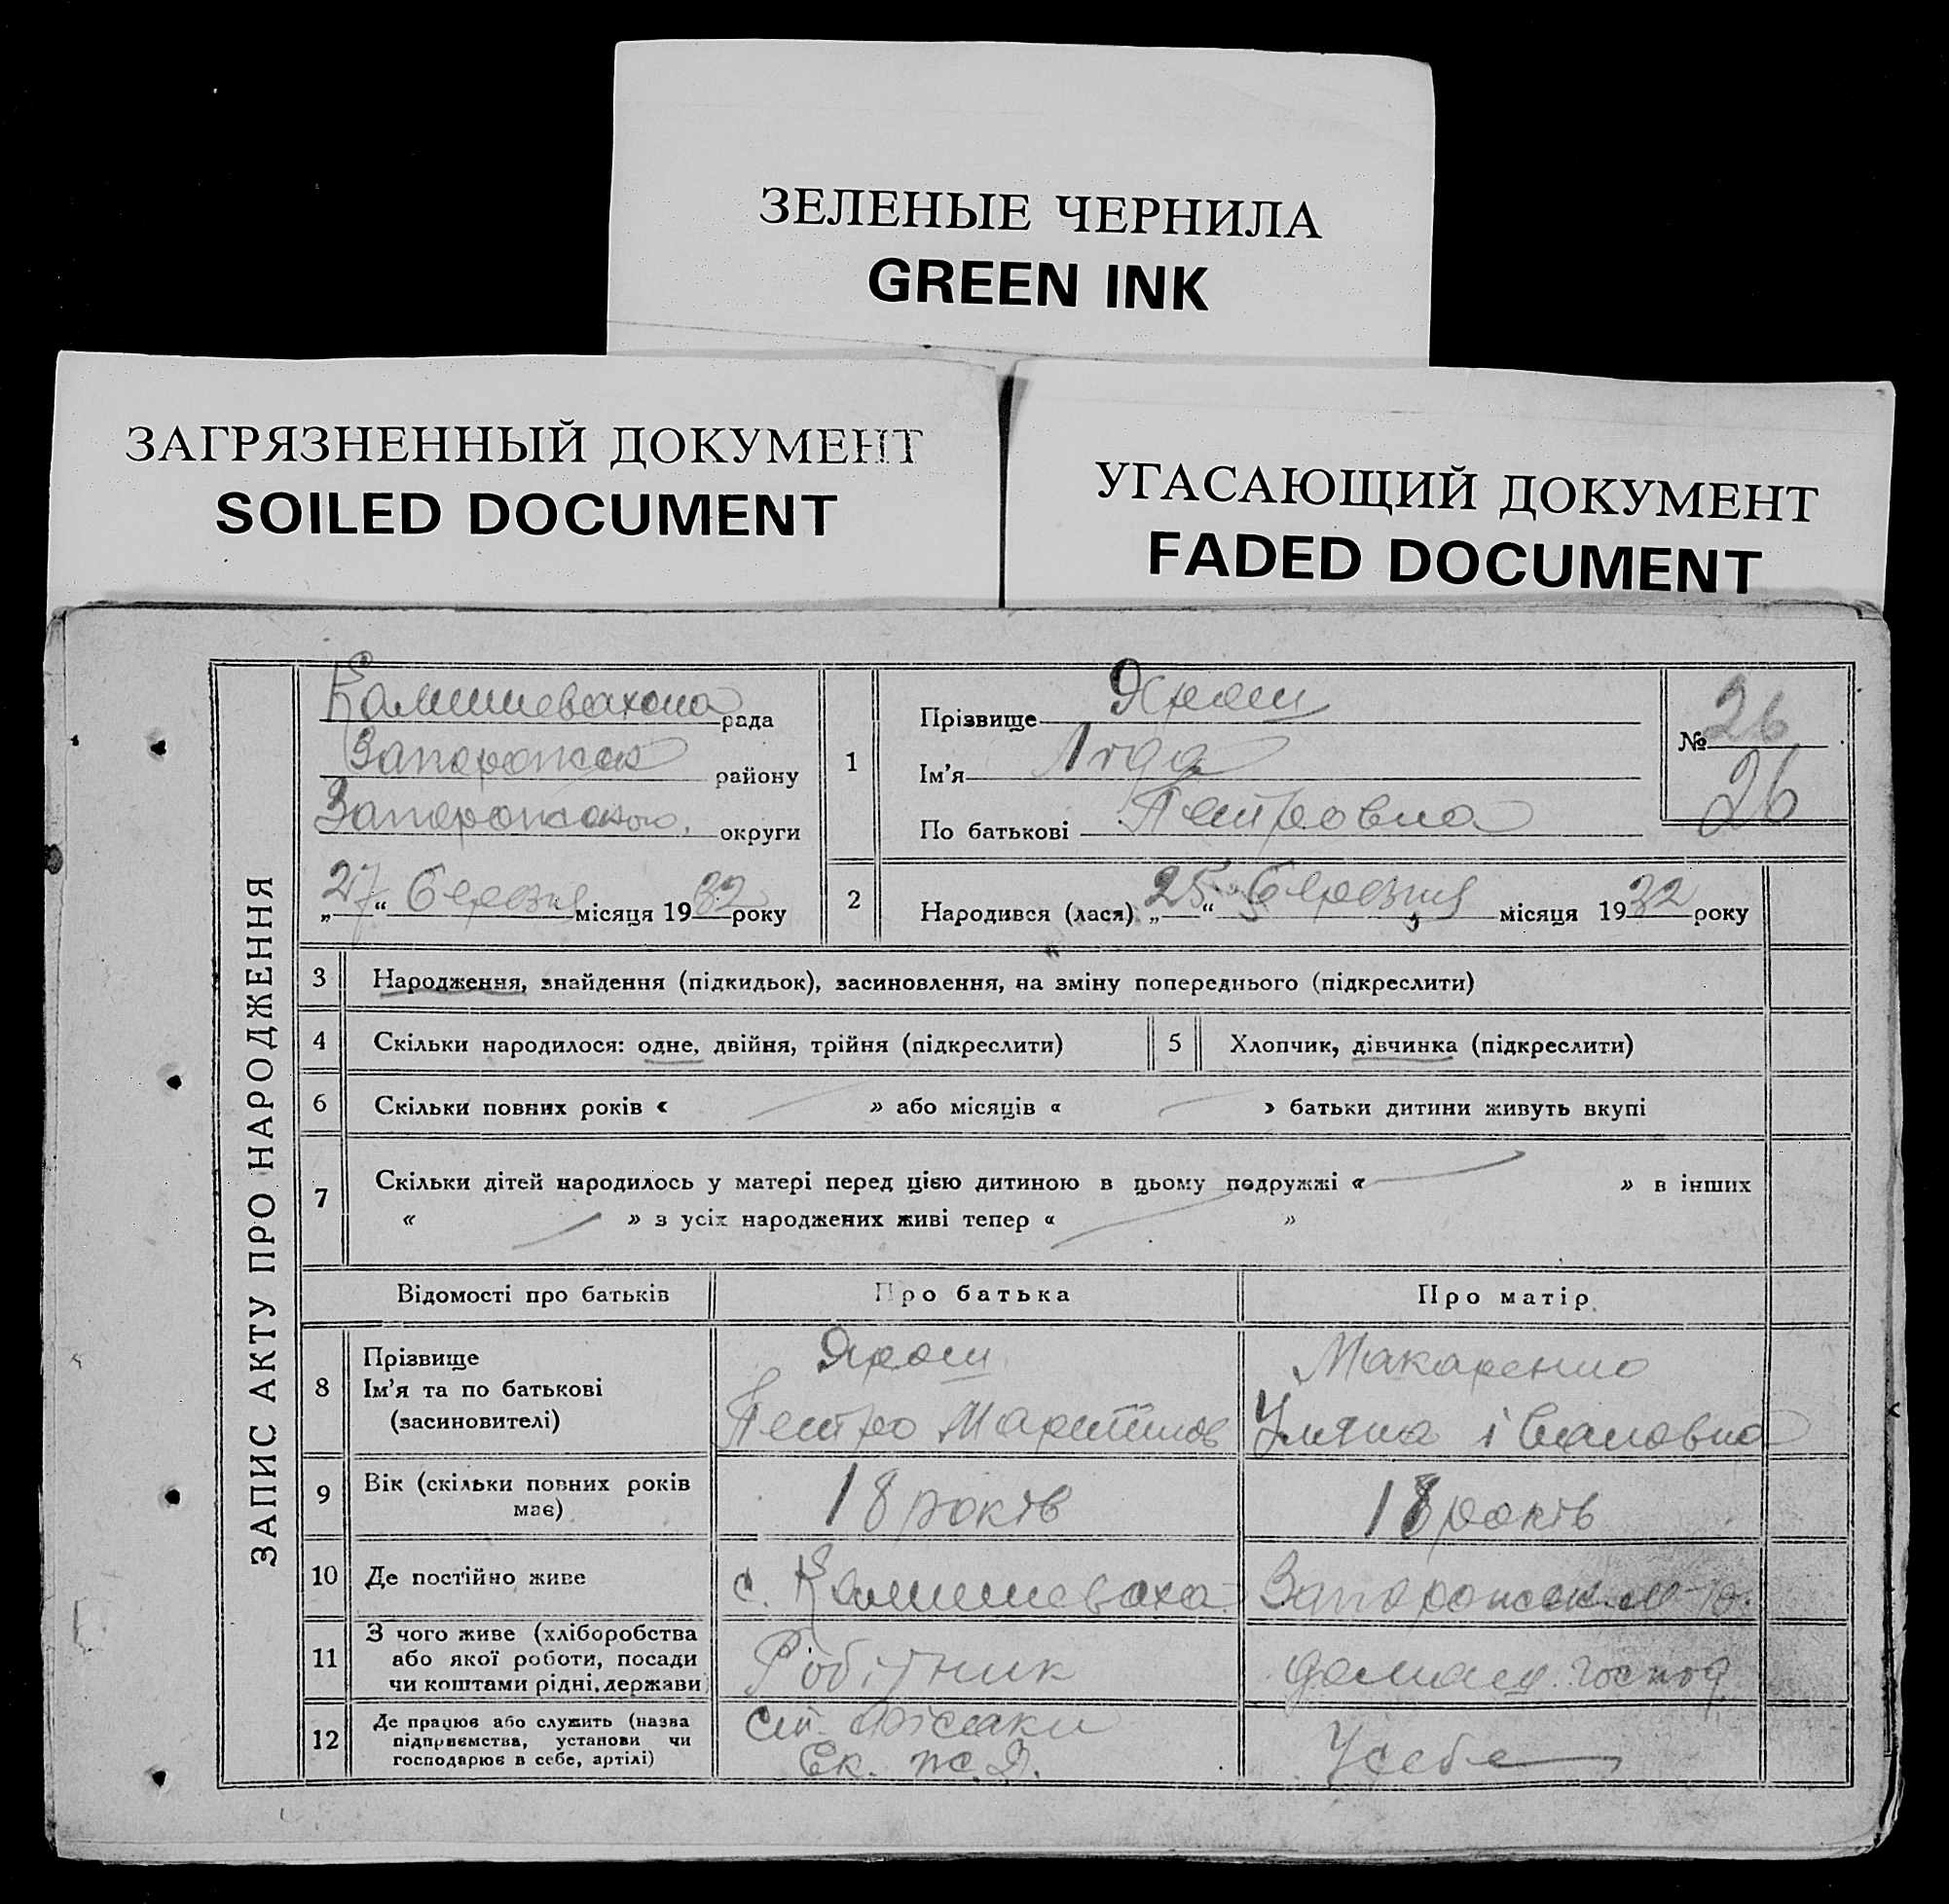 ЗЕЛЕНЫЕ ЧЕРНИЛА
GREEN INK
ЗАГРЯЗНЕННЫЙ ДОКУМЕНТ
SOILED DOCUMENT
УГАСАЮЩИЙ ДОКУМЕНТ
FADED DOCUMENT
ЗАПИС АКТУ ПРО НАРОДЖЕННЯ
Камишевахська рада
Запорожск району
Запорожського округи
„27“ березня місяця 1932 року
1
Прізвище Ярош
Ім'я Лида
По батькові Петровна
№ 26
26
2
Народився (лася) „25“ березня місяця 1932 року
3 Народження, знайдення (підкидьок), засиновлення, на зміну попереднього (підкреслити)
4 Скільки народилося: одне, двійня, трійня (підкреслити) 5 Хлопчик, дівчинка (підкреслити)
6 Скільки повних років « » або місяців « » батьки дитини живуть вкупі
7 Скільки дітей народилось у матері перед цією дитиною в цьому подружжі « » в інших
« » з усіх народжених живі тепер « »
Відомості про батьків Про батька Про матір
8 Прізвище
Ім'я та по батькові
(засиновителі)
Ярош
Петро Мартинов
Макаренко
Уляна Івановна
9 Вік (скільки повних років
має)
18 років
18 років
10 Де постійно живе
с. Камишеваха
Запорожск
11 З чого живе (хліборобства
або якої роботи, посади
чи коштами рідні, держави
Робітник
домашн. господ
12 Де працює або служить (назва
підприємства, установи чи
господарює в себе, артілі)
ст.
Ек. ж. д.
У себе